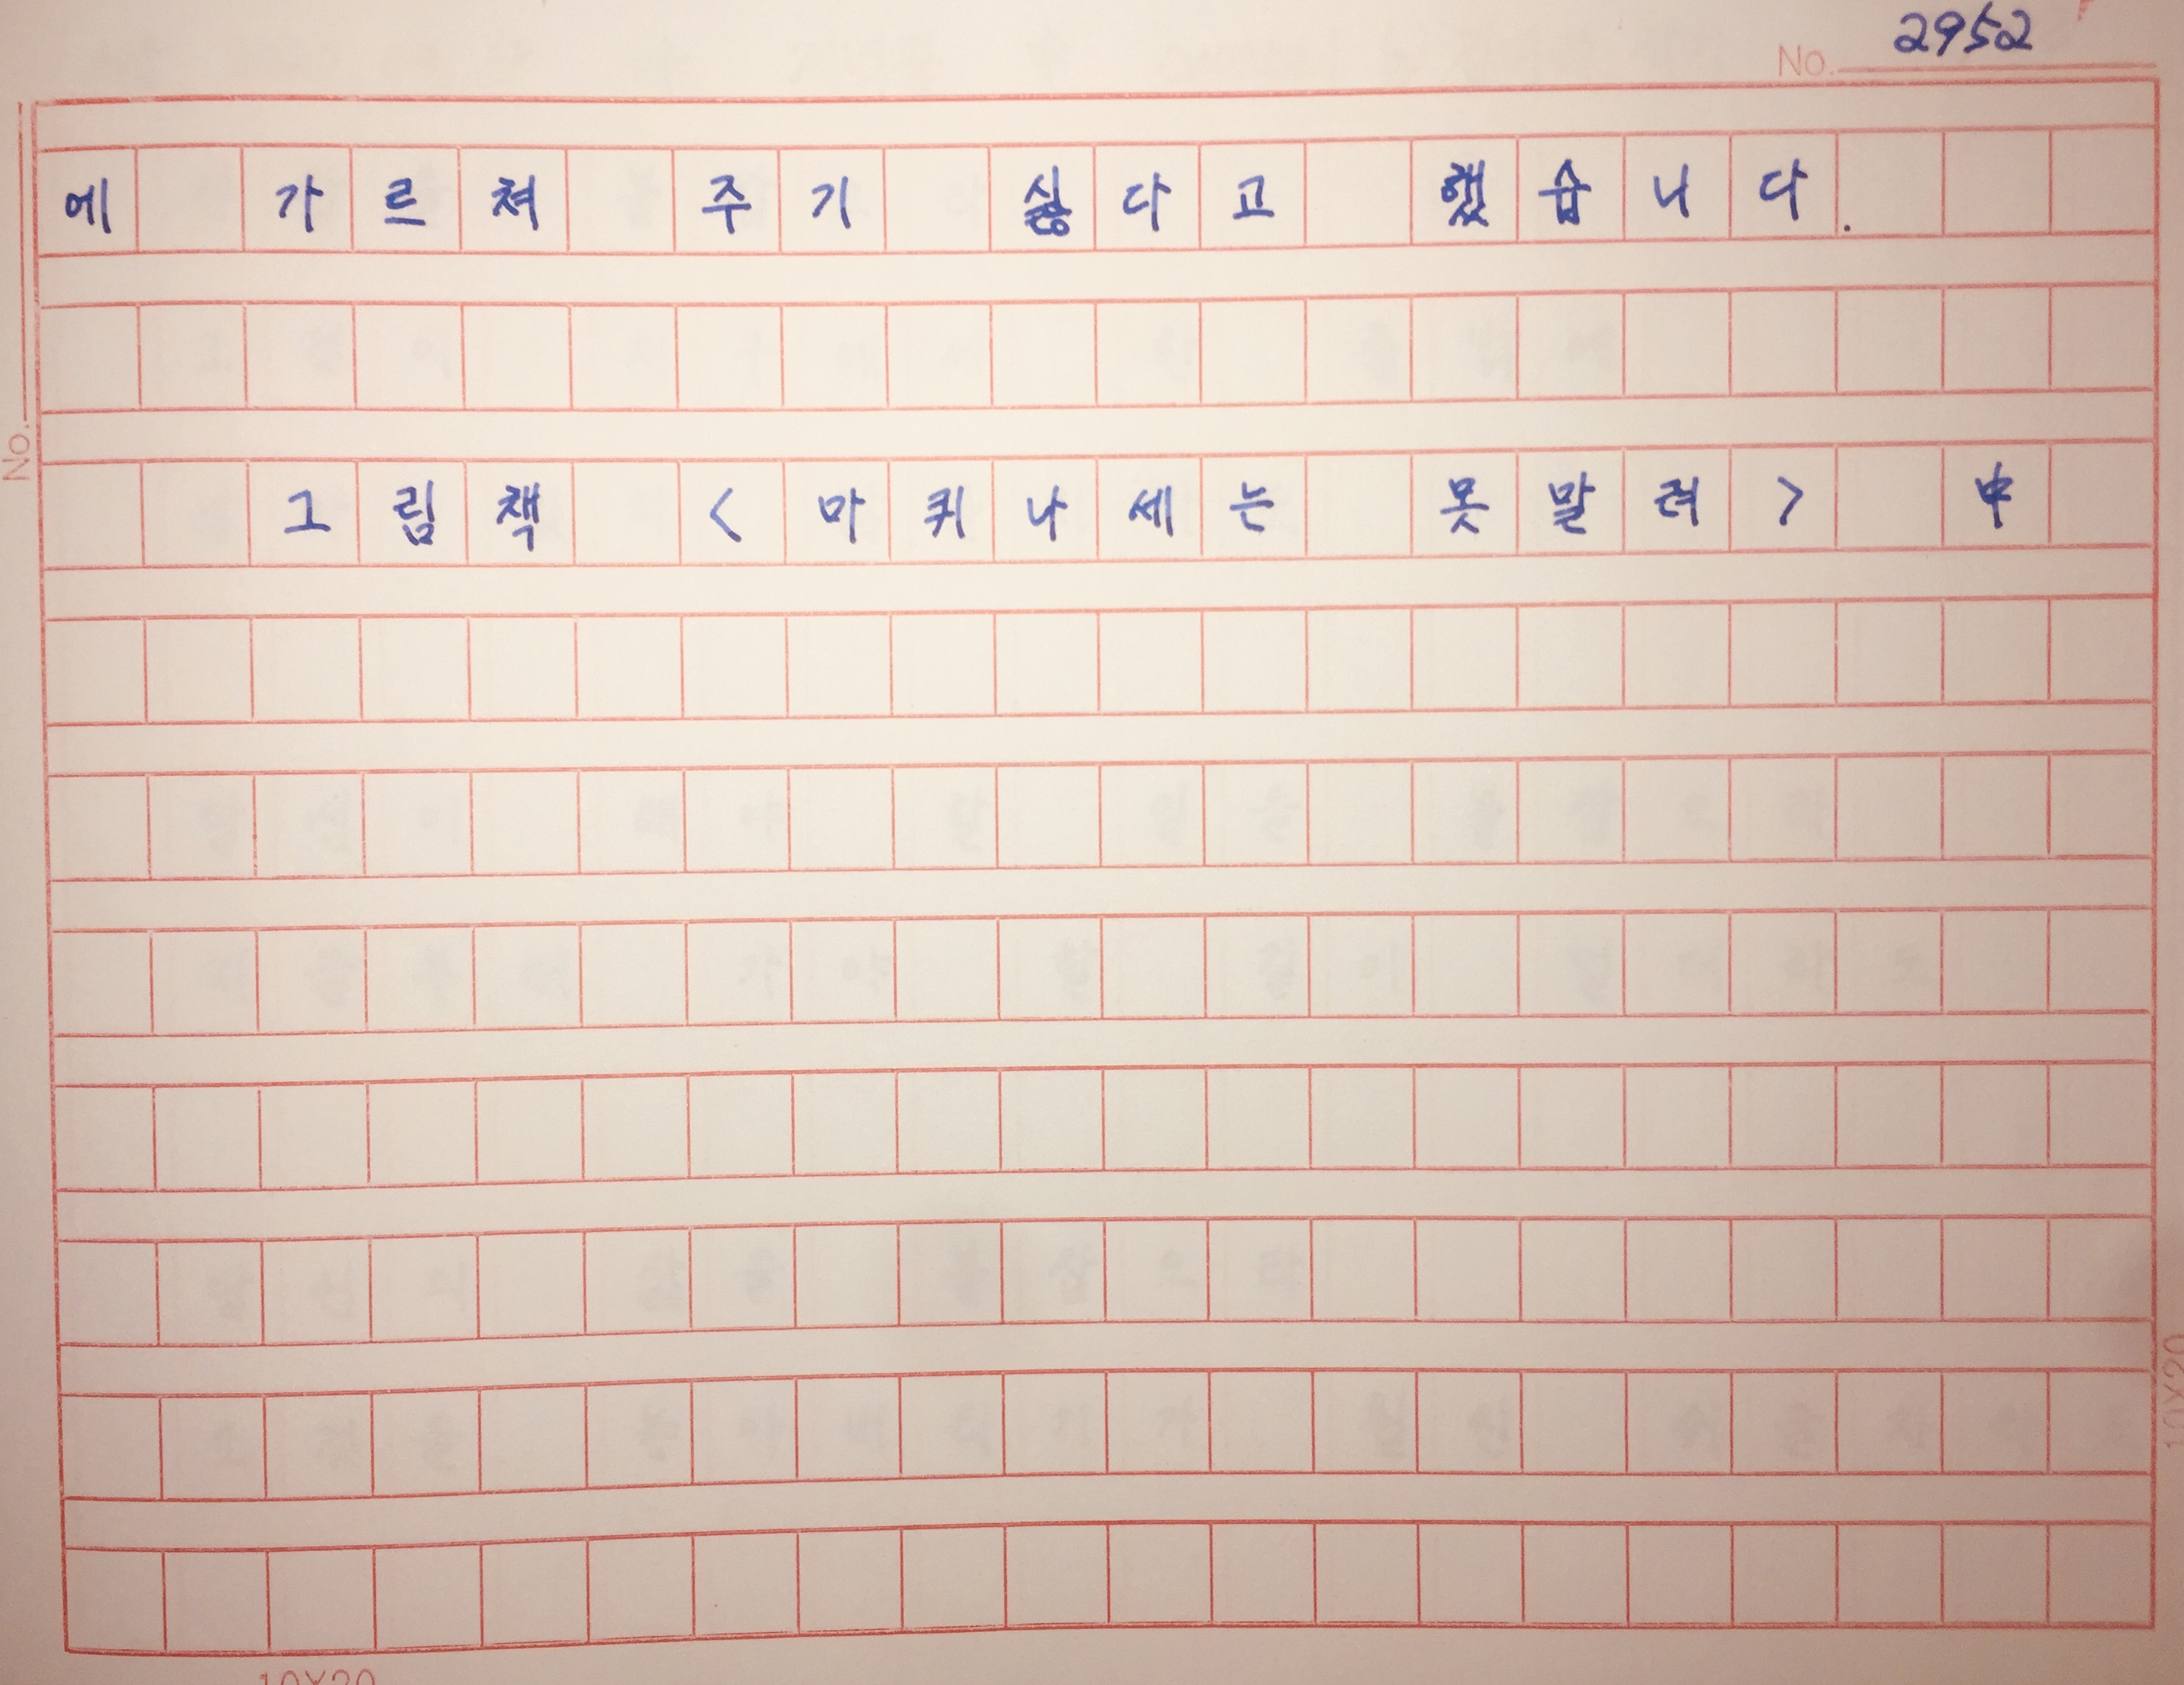 No. 2952
에 가르쳐 주기 싫다고 했습니다.
No.
그림책 <마퀴나세는 못말려> 中
10X20
10X20